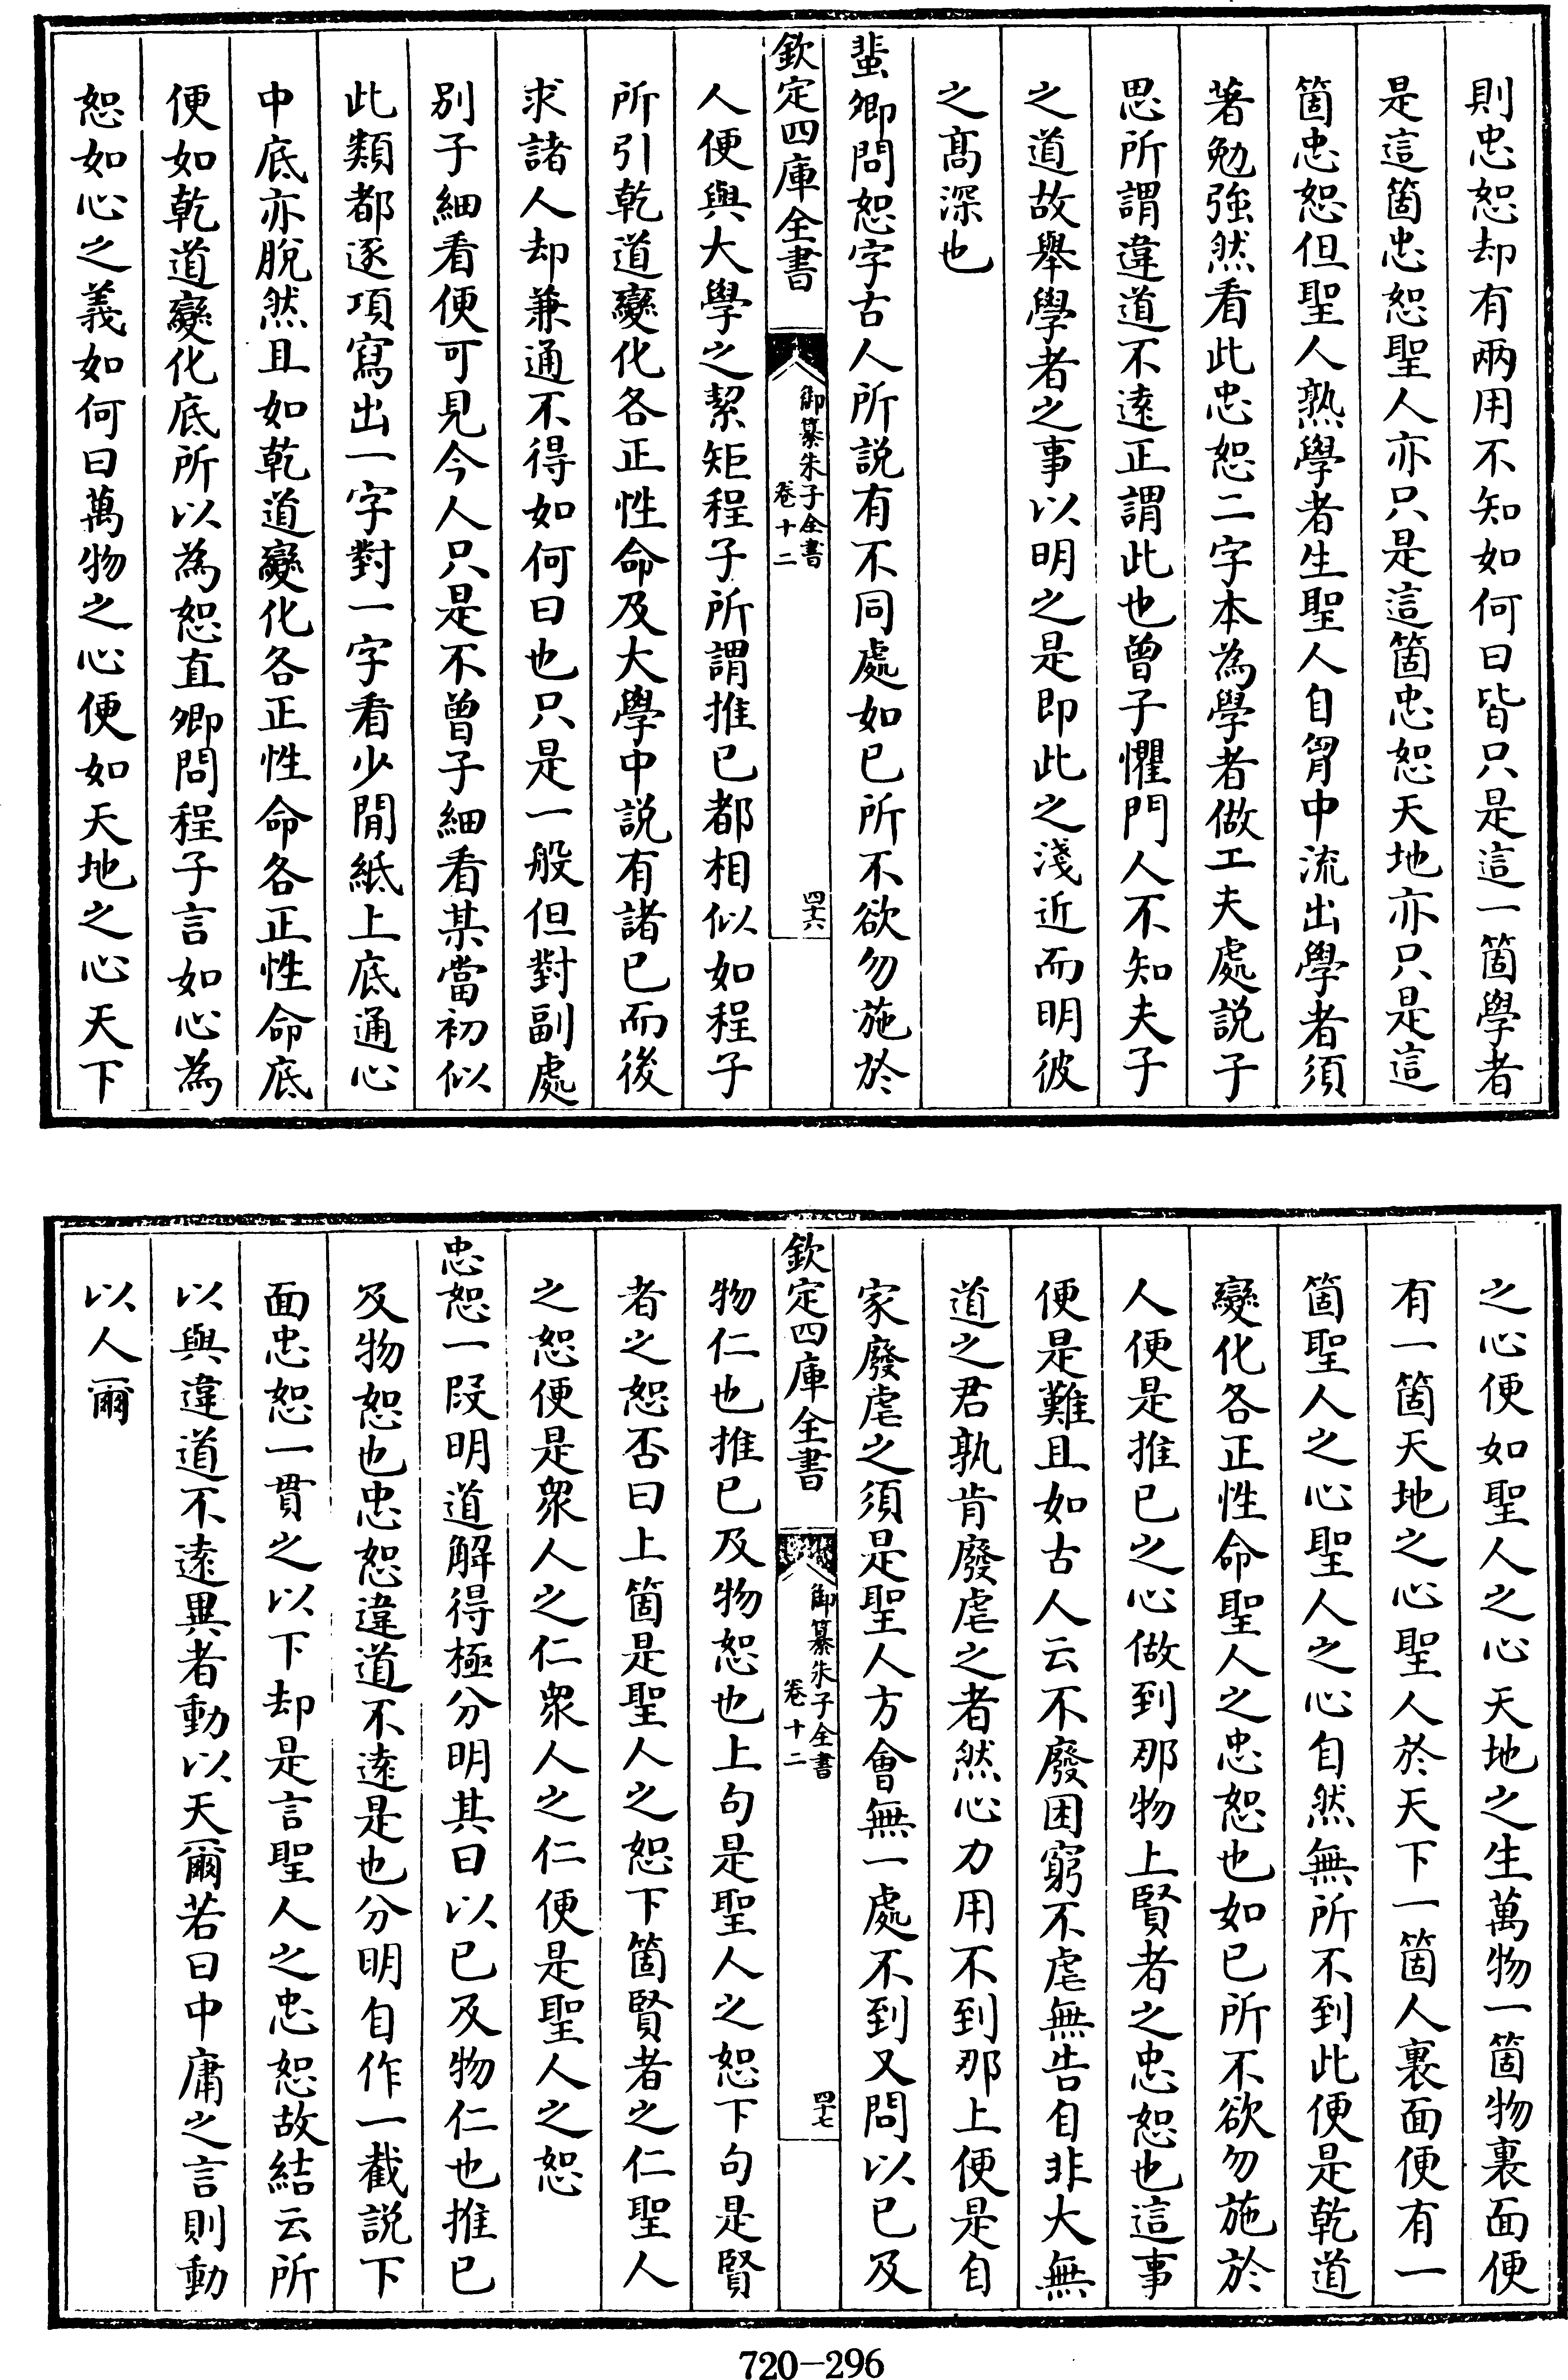 則忠恕却有兩用不知如何曰皆只是這一箇學者
是這箇忠恕聖人亦只是這箇忠恕天地亦只是這
箇忠恕但聖人熟學者生聖人自胷中流出學者須
著勉強然看此忠恕二字本為學者做工夫處説子
思所謂違道不逺正謂此也曾子懼門人不知夫子
之道故舉學者之事以明之是即此之淺近而明彼
之髙深也
蜚卿問恕字古人所説有不同處如已所不欲勿施於
欽定四庫全書
御纂朱子全書
卷十二
四十六
人便與大學之絜矩程子所謂推已都相似如程子
所引乾道變化各正性命及大學中説有諸已而後
求諸人却兼通不得如何曰也只是一般但對副處
别子細看便可見今人只是不曾子細看某當初似
此類都逐項寫出一字對一字看少閒紙上底通心
中底亦脫然且如乾道變化各正性命各正性命底
便如乾道變化底所以為恕直卿問程子言如心為
恕如心之義如何曰萬物之心便如天地之心天下
之心便如聖人之心天地之生萬物一箇物裏面便
有一箇天地之心聖人於天下一箇人裏面便有一
箇聖人之心聖人之心自然無所不到此便是乾道
變化各正性命聖人之忠恕也如已所不欲勿施於
人便是推已之心做到那物上賢者之忠恕也這事
便是難且如古人云不廢困窮不虐無告自非大無
道之君孰肯廢虐之者然心力用不到那上便是自
家廢虐之須是聖人方會無一處不到又問以已及
欽定四庫全書
御纂朱子全書
卷十二
四十七
物仁也推已及物恕也上句是聖人之恕下句是賢
者之恕否曰上箇是聖人之恕下箇賢者之仁聖人
之恕便是衆人之仁衆人之仁便是聖人之恕
忠恕一段明道解得極分明其曰以已及物仁也推已
及物恕也忠恕違道不逺是也分明自作一截説下
面忠恕一貫之以下却是言聖人之忠恕故結云所
以與違道不逺異者動以天爾若曰中庸之言則動
以人爾
720-296